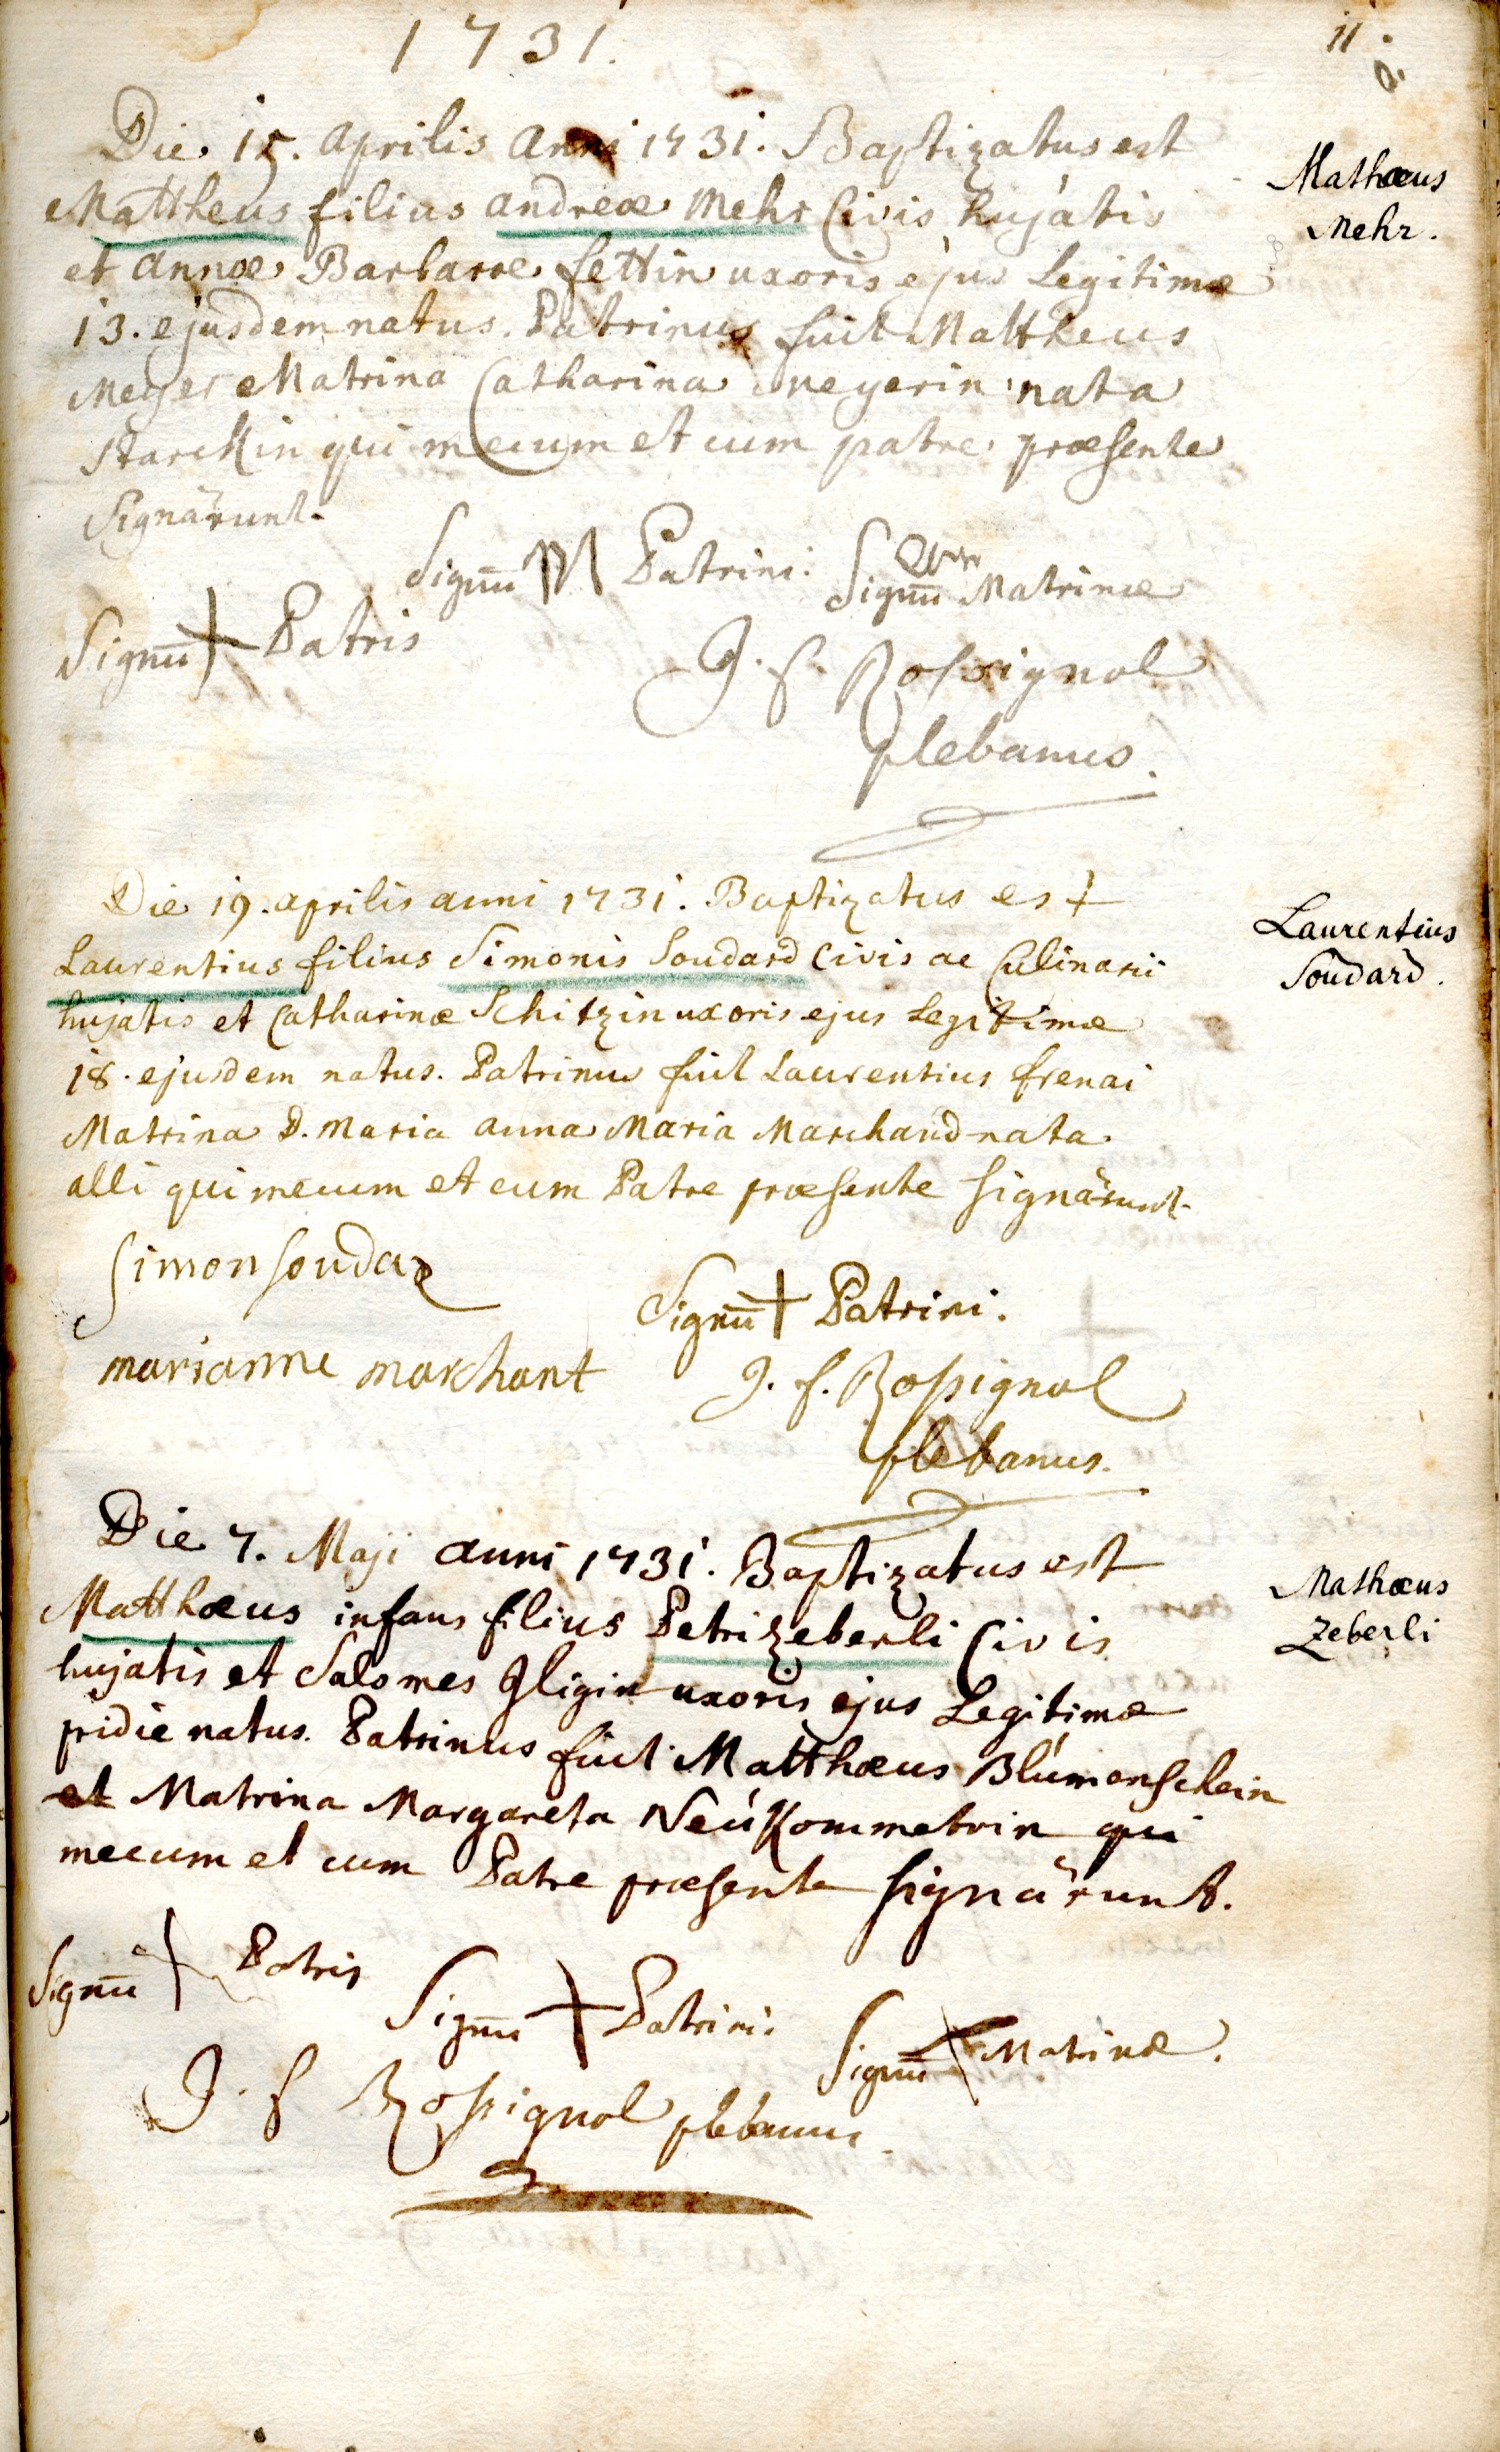 1731.
11.
Die 15. Aprilis Anni 1731. Baptizatus est
Mattheus filius Andreæ Mehr Civis hujatis
et Annæ Barbaræ fettin uxoris ejus Legitimæ
13. ejusdem natus. Patrinus fuit Mattheus
Meyer Matrina Catharina meyerin nata
Starckin qui mecum et cum patre præsente
Signârunt.
Mathæus
Mehr.
Signū M Patrini. Signū Matrinæ
Signū + Patris
J. f. Rossignol
plebanus.
Die 19. aprilis anni 1731. Baptizatus est
Laurentius filius Simonis Soudard Civis ac Culinarii
hujatis et Catharinæ Schitzin uxoris ejus Legitimæ
18. ejusdem natus. Patrinus fuit Laurentius frenai
Matrina D. Maria anna Maria Marchand nata
alli qui mecum et cum Patre præsente signârunt.
Laurentius
Soudard.
Simon soudar
Signū + Patrini.
marianne marchant
J. f. Rossignol
plebanus.
Die 7. Maji anni 1731. Baptizatus est
Matthæus infans filius Petri Zeberli Civis
hujatis et Salomes Gligin uxoris ejus Legitimæ
pridie natus. Patrinus fuit Matthæus Blúmenschein
et Matrina Margareta Neúkommetrin qui
mecum et cum Patre præsente signârunt.
Mathæus
Zeberli
Signū + Patris
Signū + Patrini.
Signū + Matrinæ.
J. f Rossignol plebanus.